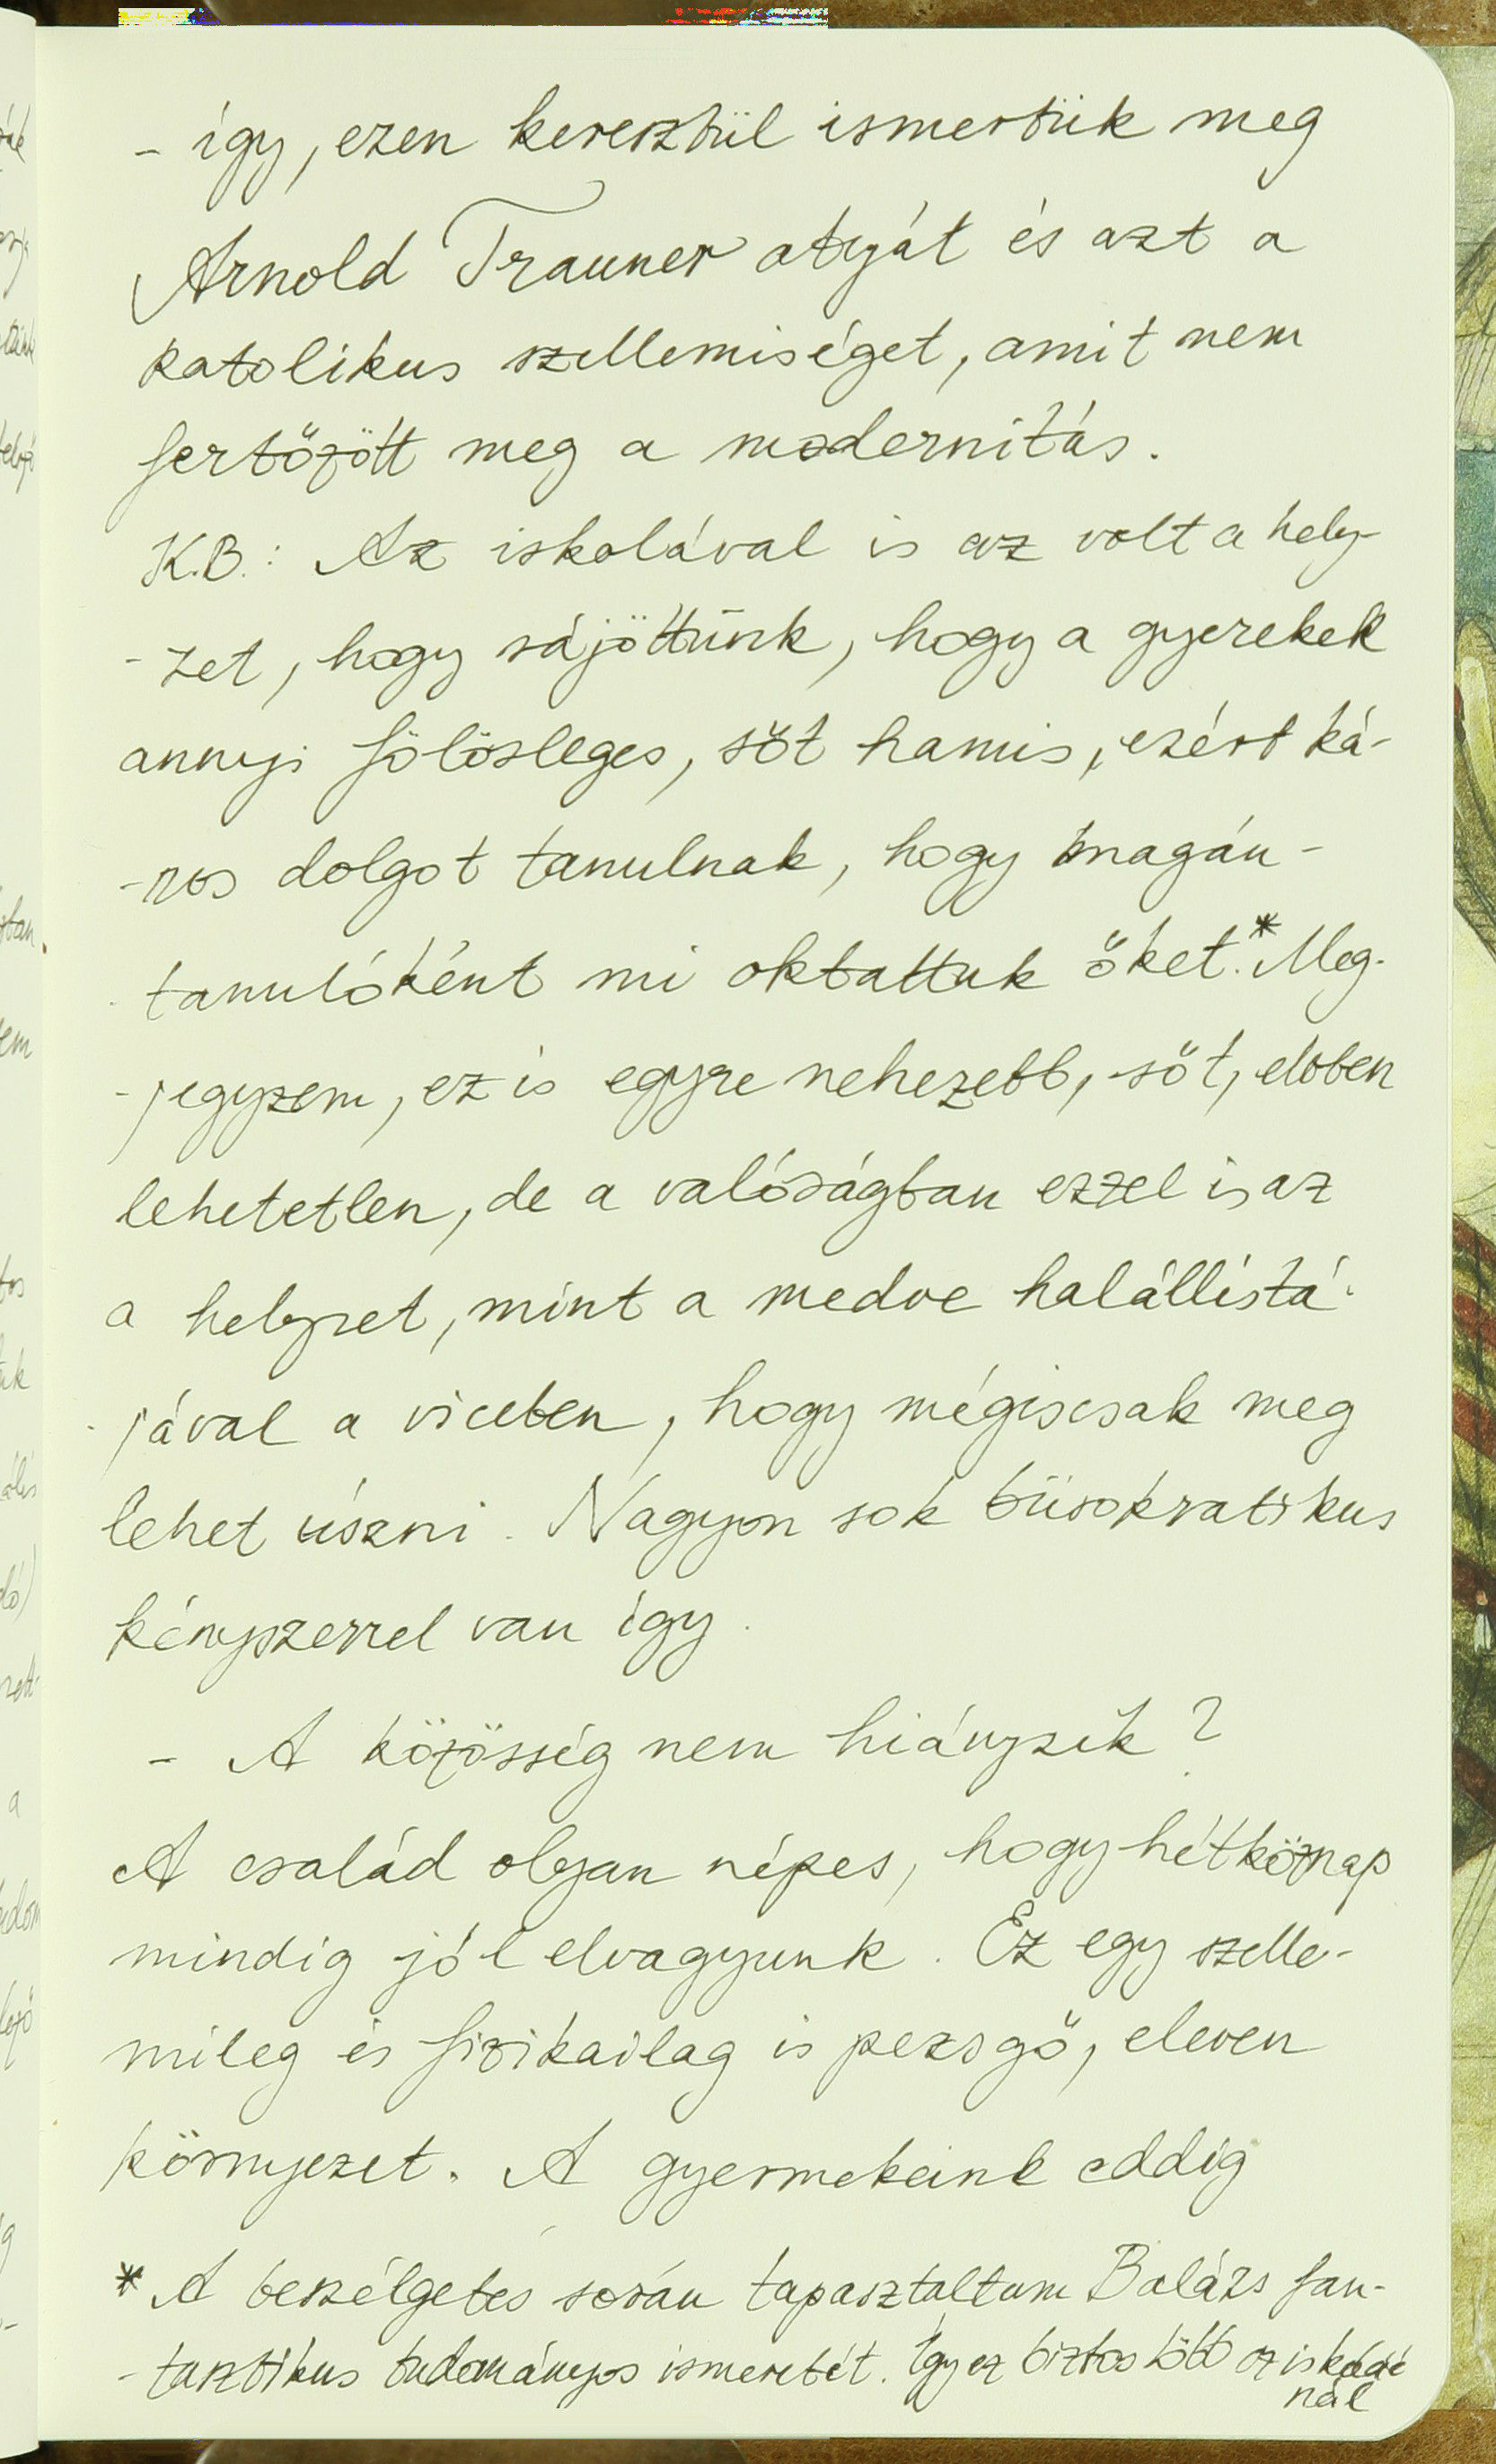 - így, ezen keresztül ismertük meg
Arnold Trauner atyát és azt a
katolikus szellemiséget, amit nem
fertőzött meg a modernitás.
K.B.: Az iskolával is az volt a hely-
-zet, hogy rájöttünk, hogy a gyerekek
annyi fölösleges, sőt hamis, ezért ká-
-ros dolgot tanulnak, hogy magán-
tanulóként mi oktattuk őket.* Meg-
-jegyzem, ez is egyre nehezebb, sőt, elvben
lehetetlen, de a valóságban ezzel is az
a helyzet, mint a medve halállistá-
-jával a viccben, hogy mégiscsak meg
lehet úszni. Nagyon sok bürokratikus
kényszerrel van így.
- A közösség nem hiányzik?
A család olyan népes, hogy hétköznap
mindig jól elvagyunk. Ez egy szelle-
mileg és fizikailag is pezsgő, eleven
környezet. A gyermekeink eddig
* A beszélgetés során tapasztaltam Balázs fan-
-tasztikus tudományos ismeretét. Így ez biztos több az iskolá
nál